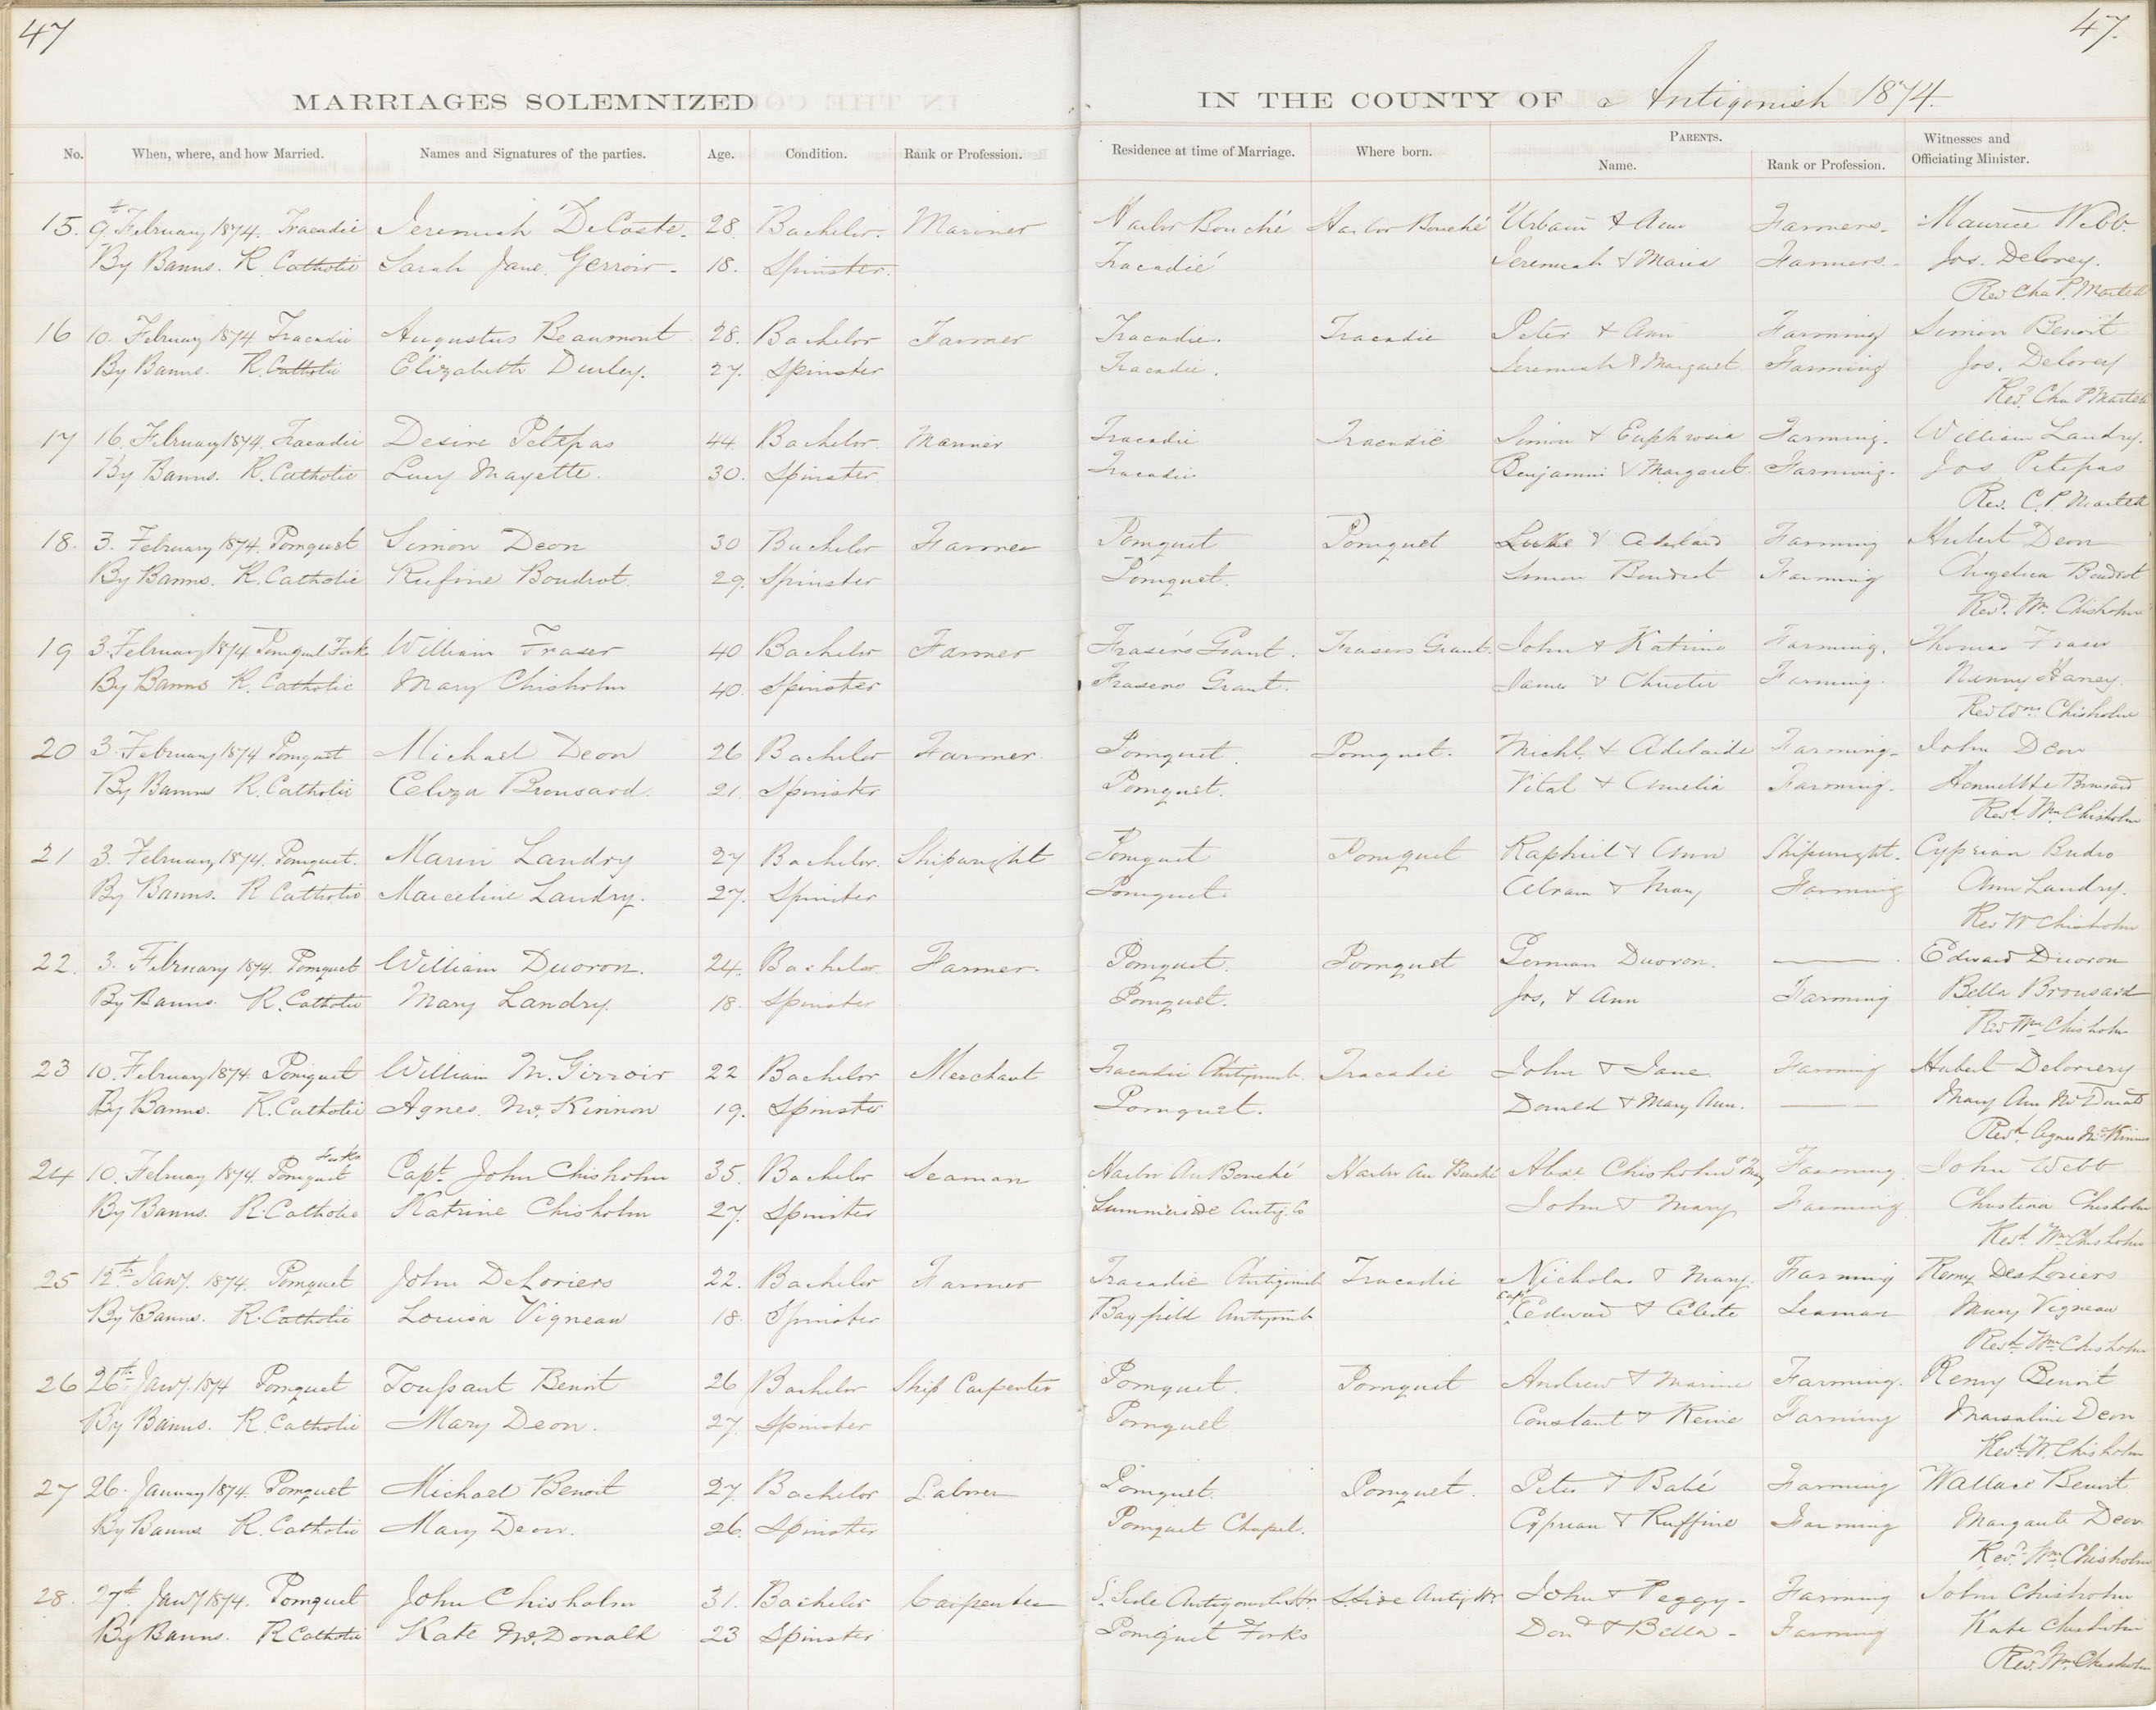 47
47.
MARRIAGES SOLEMNIZED
IN THE COUNTY OF Antigonish 1874.
No. When, where, and how Married. Names and Signatures of the parties. Age. Condition. Rank or Profession. Residence at time of Marriage. Where born. PARENTS. Name. Rank or Profession. Witnesses and Officiating Minister.
15. 9th February 1874. Tracadie Jeremiah DeCoste. 28. Bachelor. Mariner Harbor Bouché Harbor Bouché Urbain & Ann Farmers. Maurice Webb.
By Banns. R. Catholic Sarah Jane Gerroir. 18. Spinster. Tracadié Jeremiah & Maria Farmers. Jos. Delorey.
Rev Cha P. Martell
16 10. February 1874 Tracadie Augustus Beaumont 28. Bachelor Farmer Tracadie. Tracadie Peter & Ann Farming Simon Benoit
By Banns. R. Catholic Elizabeth Durley. 27. Spinster Tracadie. Jeremiah & Margaret Farming Jos. Delorey
Revd. Cha P Martell
17 16. February 1874. Tracadie Desire Petepas 44. Bachelor. Mariner Tracadie Tracadie Simon & Euphrosia Farming. William Landry.
By Banns. R. Catholic Lucy Mayette. 30. Spinster. Tracadie Benjamin & Margaret Farming. Jos Petepas
Rev. C. P. Martell
18. 3. February 1874. Pomquet Simon Deon 30 Bachelor Farmer Pomquet Pomquet Luke & Adelaid Farming Hubert Deon
By Banns. R. Catholic Rufine Boudrot. 29. Spinster Pomquet. Simon Boudrot Farming Angelica Boudrot
Revd. Wm Chisholm
19 3. February 1874 Pomquet Fork William Fraser 40 Bachelor Farmer Fraser's Grant. Frasers Grant. John & Katrine Farming. Thomas Fraser
By Banns R. Catholic Mary Chisholm 40. Spinster Frasers Grant. James & Christie Farming. Nanny Haney.
Rev Wm Chisholm
20 3. February 1874 Pomquet Michael Deon 26 Bachelor Farmer. Pomquet. Pomquet. Michl. & Adelaide Farming. John Deon
By Banns R. Catholic Eliza Brousard. 21. Spinster Pomquet. Vital & Amelia Farming. Brousard
Revd Wm Chisholm
21 3. February 1874. Pomquet. Marin Landry 27 Bachelor. Shipwright Pomquet Pomquet Raphiel & Ann Shipwright. Cyprian Budro
By Banns. R Catholic Marceline Landry. 27. Spinster Pomquet. Abram & Mary Farming Ann Landry.
Rev W Chisholm
22. 3. February 1874. Pomquet William Duoron. 24. Bachelor Farmer. Pomquet. Pomquet German Duoron. ——. Edward Duoron
By Banns. R. Catholic Mary Landry. 18. Spinster Pomquet. Jos. & Ann Farming Bella Brousard
Rev Wm Chisholm
23 10. February 1874. Pomquet William M. Girroir 22 Bachelor Merchant Tracadie Antigonish. Tracadie John & Jane. Farming Hubert Deloriery
By Banns. R. Catholic Agnes. McKinnon 19. Spinster Pomquet. Donald & Mary Ann. —— Mary Ann McDonald
Revd. Agnes McKinnon
24 10. February 1874. Pomquet Forks Capt. John Chisholm 35. Bachelor Seaman Harbor Au Bouché Harbor Au Bouché Alex Chisholm & Mary Farming. John Webb
By Banns. R. Catholic Katrine Chisholm 27. Spinster Summerside Antig. Co John & Mary Farming Christina Chisholm
Revd. Wm Chisholm
25 12th Jany. 1874. Pomquet John DeLoriers 22. Bachelor Farmer Tracadie Antigonish Tracadie Nicholas & Mary. Farming Remy DesLoriers
By Banns. R. Catholic Louisa Vigneau 18 Spinster Bayfield Antigonish Capt. Edward & Celeste Seaman Mary Vigneau
Revd. Wm Chisholm
26 26th Jany. 1874 Pomquet Toussant Benoit 26 Bachelor Ship Carpenter Pomquet. Pomquet Andrew & Marine Farming. Remy Benoit
By Banns. R. Catholic Mary Deon. 27. Spinster Pomquet Constant & Reine Farming Marsaline Deon
Revd. W. Chisholm
27 26. January 1874. Pomquet Michael Benoit 27. Bachelor Labrer Pomquet. Pomquet. Peter & Babé Farming Wallace Benoit
By Banns R. Catholic Mary Deon. 26. Spinster Pomquet Chapel. Cyprian & Ruffine Farming Margante Deon
Revd. Wm. Chisholm
28. 27th Jany 1874. Pomquet John Chisholm 31. Bachelor Carpenter S. Side Antigonish Hr. S. Side Antig. Hr. John & Peggy. Farming John Chisholm
By Banns. R Catholic Kate McDonald 23 Spinster Pomquet Forks Dond & Bella. Farming Kate Chisholm
Revd. Wm Chisholm